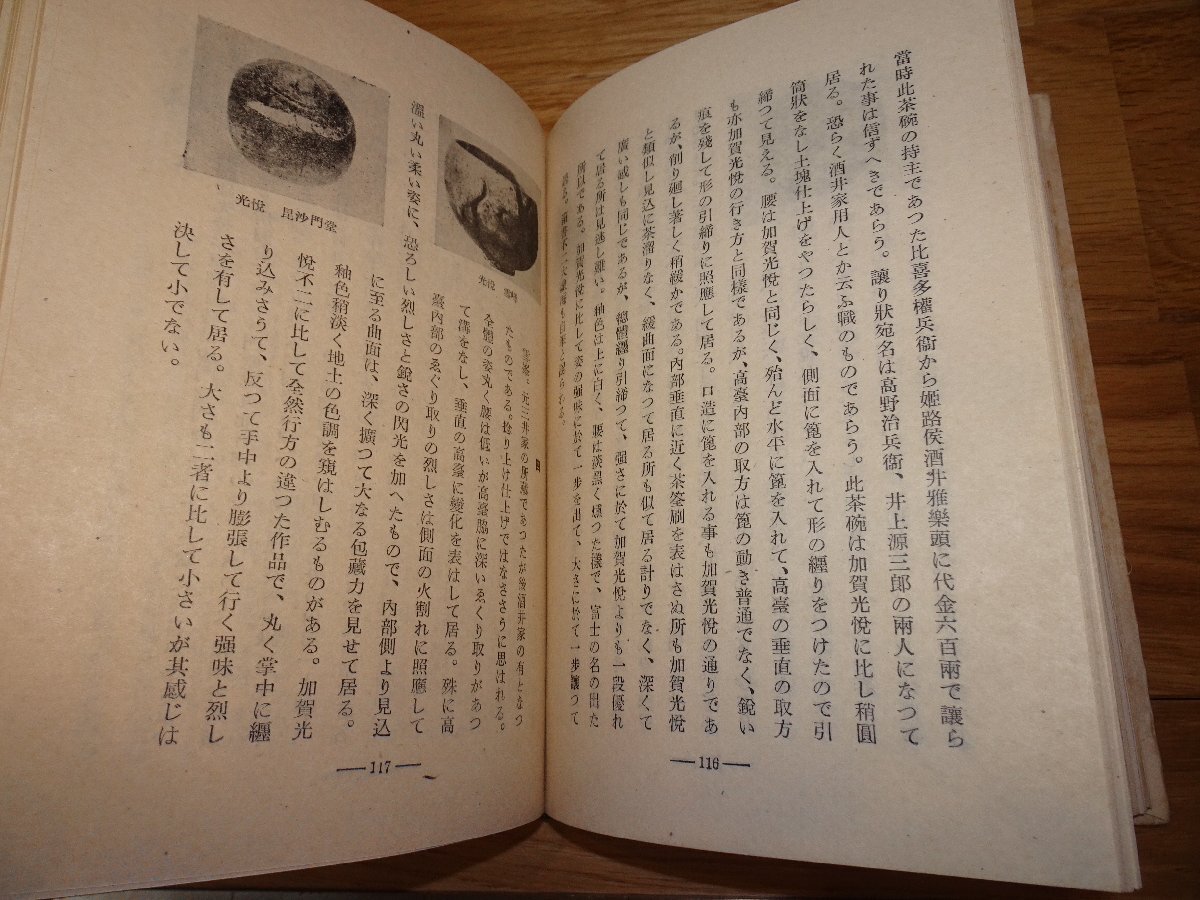 當時此茶碗の持主であつた比喜多權兵衞から姬路侯酒井雅樂頭に代金六百兩で讓ら
れた事は信ずへきであらう。讓り狀宛名は高野治兵衞、井上源三郎の兩人になつて
居る。恐らく酒井家用人とか云ふ職のものであらう。此茶碗は加賀光悅に比し稍圓
筒狀をなし土塊仕上げをやつたらしく、側面に篦を入れて形の纒りをつけたので引
締つて見える。腰は加賀光悅と同じく、殆んど水平に篦を入れて、高臺の垂直の取方
も亦加賀光悅の行き方と同樣であるが、高臺內部の取方は篦の動き普通でなく、銳い
痕を殘して形の引締りに照應して居る。口造に篦を入れる事も加賀光悅の通りであ
るが、削り廻し著しく稍緩かである。內部垂直に近く茶筌刷を表はさぬ所も加賀光悅
と類似し見込に茶溜りなく、緩曲面になつて居る所も似て居る計りでなく、深くて
廣い感しも同じであるが、總體纒り引締つて、强さに於て加賀光悅よりも一段優れ
て居る所は見逃し難い。釉色は上に白く、腰は淡黑く燻つた樣で、富士の名の出た
所以である。加賀光悅に比して姿の强味に於て一步を出て、大さに於て一步讓つて
居る。
—116—
光悅 雪峰
光悅 毘沙門堂
雪峰、元三井家の所藏であつたが後酒井家の有となつ
たものである。捻り上け仕上げではなささうに思はれる。
全體の姿丸く腰は低いが高臺脇に深いゑくり取りがあつ
て溝をなし、垂直の高臺に變化を表はして居る。殊に高
臺內部のゑぐり取りの烈しさは側面の火割れに照應して
溫い丸い柔い姿に、恐ろしい烈しさと銳さの閃光を加へたもので、內部側より見込
に至る曲面は、深く擴つて大なる包藏力を見せて居る。
釉色稍淡く地土の色調を窺はしむるものがある。加賀光
悅不二に比して全然行方の違つた作品で、丸く掌中に纒
り込みさうて、反つて手中より膨張して行く强味と烈し
さを有して居る。大さも二者に比して小さいが其感じは
決して小でない。
—117—